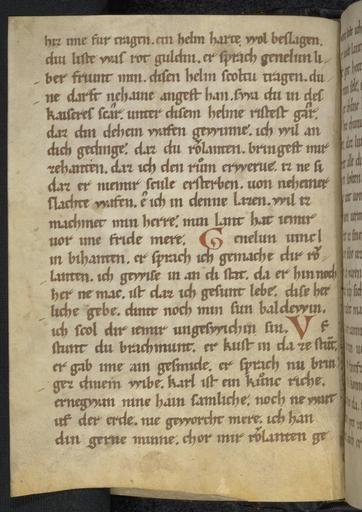 hiz ime fur tragen. ein helm harte wol beslagen.
diu liste was rot guldin. er sprach genelun li
ber friunt min. disen helm scoltu tragen. du
ne darft nehaine angest han. swa du in des
kaiseres scar. unter disem helme ristest gar.
daz din dehein wafen gewinne. ich wil an
dich gedinge. daz du rŏlanten. bringest mir
zehanten. daz ich den rům erwerue. er ne si
daz er niemir scule ersterben. uon neheiner
slachte wafen. e ich in denne lazen. wil er
machmet min herre. min lant hat iemir
uor ime fride mere. Genelun umel
in bihanten. er sprach ich gemache dir rŏ
lanten. ich gewise in an di stat. da er hin noch
her ne mac. ist daz ich gesunt lebe. dise her
liche gebe. dinit noch min sun baldewin.
ich scol dir iemir ungeswichin sin. Vf
stunt du brachmunt. er kust in da ze stunt.
er gab ime ain gesmide. er sprach nu brin
gez dinem wibe. karl ist ein kunc riche.
ernegwan nine hain samliche. noch ne wart
uf der erde. nie geworcht mere. ich han
din gerne minne. chor mir rŏlanten ge